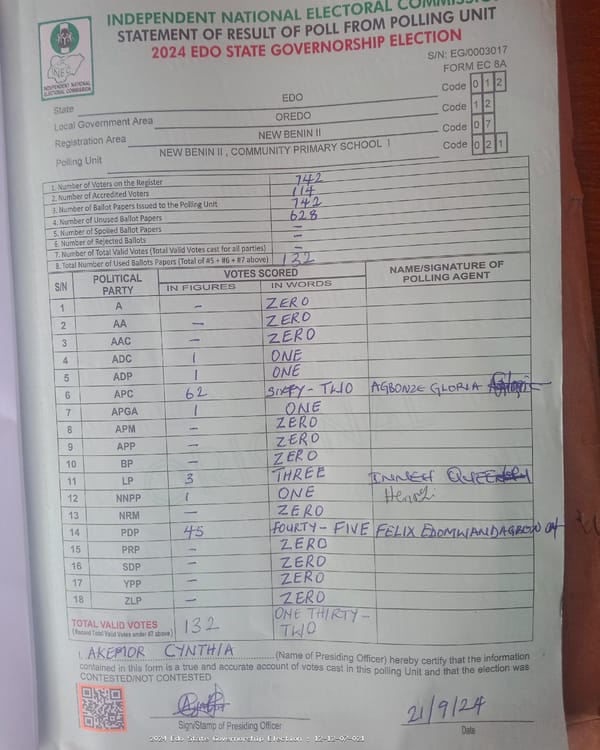 INDEPENDENT NATIONAL ELECTORAL COMMISSION
STATEMENT OF RESULT OF POLL FROM POLLING UNIT
2024 EDO STATE GOVERNORSHIP ELECTION
INEC
INDEPENDENT NATIONAL
ELECTORAL COMMISSION
S/N: EG/0003017
FORM EC 8A
State EDO Code 0 1 2
Local Government Area OREDO Code 1 2
Registration Area NEW BENIN II Code 0 7
Polling Unit NEW BENIN II , COMMUNITY PRIMARY SCHOOL I Code 0 2 1
1. Number of Voters on the Register 742
2. Number of Accredited Voters 114
3. Number of Ballot Papers Issued to the Polling Unit 742
4. Number of Unused Ballot Papers 628
5. Number of Spoiled Ballot Papers –
6. Number of Rejected Ballots –
7. Number of Total Valid Votes (Total Valid Votes cast for all parties) –
8. Total Number of Used Ballots Papers (Total of #5 + #6 + #7 above) 132
S/N POLITICAL PARTY VOTES SCORED NAME/SIGNATURE OF POLLING AGENT
IN FIGURES IN WORDS
1 A – ZERO
2 AA – ZERO
3 AAC – ZERO
4 ADC 1 ONE
5 ADP 1 ONE
6 APC 62 SIXTY-TWO AGBONZE GLORIA
7 APGA 1 ONE
8 APM – ZERO
9 APP – ZERO
10 BP – ZERO
11 LP 3 THREE INNEH
12 NNPP 1 ONE
13 NRM – ZERO
14 PDP 45 FOURTY-FIVE FELIX
15 PRP – ZERO
16 SDP – ZERO
17 YPP – ZERO
18 ZLP – ZERO
TOTAL VALID VOTES 132 ONE THIRTY-
(Record Total Valid Votes under #7 above) TWO
I, AKEMOR CYNTHIA (Name of Presiding Officer) hereby certify that the information
contained in this form is a true and accurate account of votes cast in this polling Unit and that the election was
CONTESTED/NOT CONTESTED
Sign/Stamp of Presiding Officer
21/9/24
Date
2024 Edo State Governorship Election : 12-12-07-021